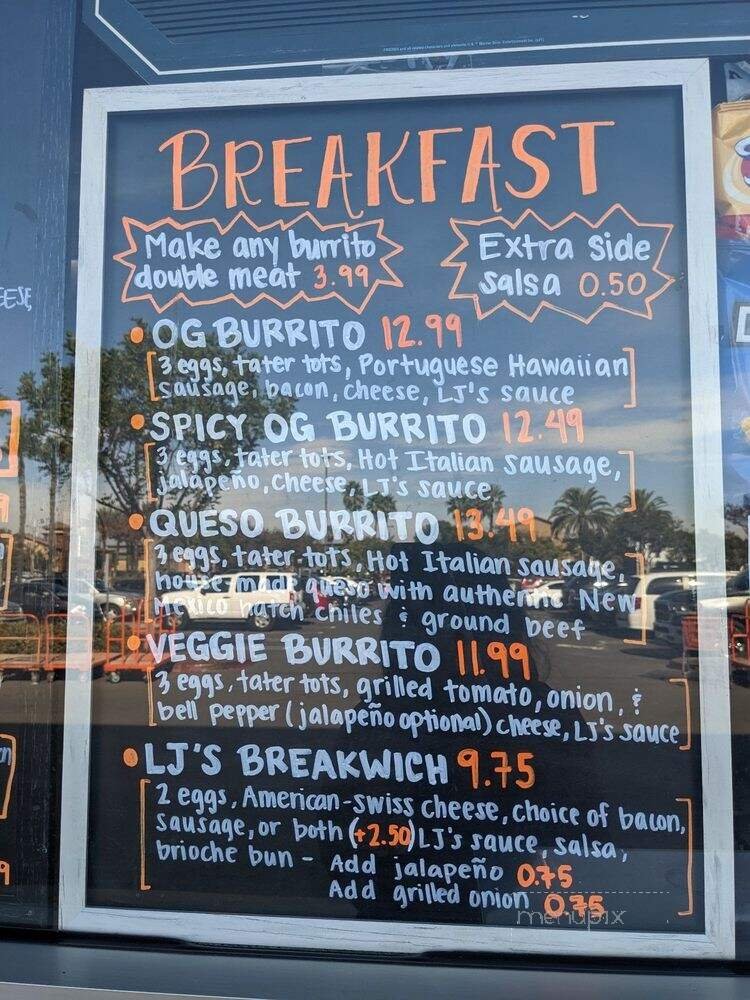 BREAKFAST
Make any burrito
double meat 3.99
Extra Side
Salsa 0.50
• OG BURRITO 12.99
3 eggs, tater tots, Portuguese Hawaiian
sausage, bacon, cheese, LJ's sauce
• SPICY OG BURRITO 12.49
3 eggs, tater tots, Hot Italian sausage,
jalapeño, cheese, LJ's sauce
• QUESO BURRITO 13.49
3 eggs, tater tots, Hot Italian sausage,
house made queso with authentic New
Mexico hatch chiles & ground beef
• VEGGIE BURRITO 11.99
3 eggs, tater tots, grilled tomato, onion, &
bell pepper (jalapeño optional) cheese, LJ's sauce
• LJ'S BREAKWICH 9.75
2 eggs, American-swiss cheese, choice of bacon,
sausage, or both (+2.50) LJ's sauce, salsa,
brioche bun - Add jalapeño 0.75
Add grilled onion 0.75
menupix